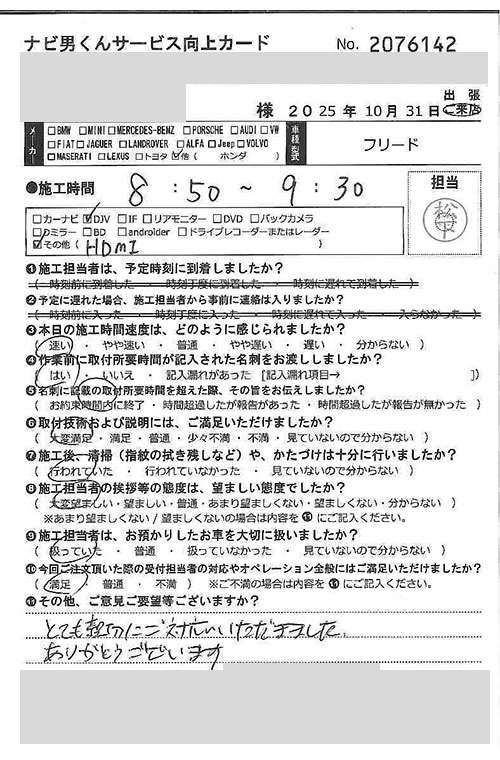 ナビ男くんサービス向上カード No. 2076142
様 2025年10月31日 出張・ご来店
メーカー □BMW □MINI □MERCEDES-BENZ □PORSCHE □AUDI □VW 車種型式 フリード
□FIAT □JAGUER □LANDROVER □ALFA □Jeep □VOLVO
□MASERATI □LEXUS □トヨタ ☑他( ホンダ )
●施工時間 8:50~9:30 担当 松平
□カーナビ ☑DJV □IF □リアモニター □DVD □バックカメラ
□Dミラー □BD □androider □ドライブレコーダーまたはレーダー
☑その他( HDMI )
❶施工担当者は、予定時刻に到着しましたか?
( 時刻前に到着した ・ 時刻丁度に到着した ・ 時刻に遅れて到着した )
❷予定に遅れた場合、施工担当者から事前に連絡は入りましたか?
( 時刻前に入った ・ 時刻丁度に入った ・ 時刻に遅れて入った ・ 入らなかった )
❸本日の施工時間速度は、どのように感じられましたか?
( 速い ・ やや速い ・ 普通 ・ やや遅い ・ 遅い ・ 分からない )
❹作業前に取付所要時間が記入された名刺をお渡ししましたか?
( はい ・ いいえ ・ 記入漏れがあった [記入漏れ項目→ ])
❺名刺に記載の取付所要時間を超えた際、その旨をお伝えしましたか?
( お約束時間内に終了・時間超過したが報告があった・時間超過したが報告が無かった )
❻取付技術および説明には、ご満足いただけましたか?
( 大変満足・満足・普通・少々不満・不満・見ていないので分からない )
❼施工後、清掃(指紋の拭き残しなど)や、かたづけは十分に行いましたか?
( 行われていた ・ 行われていなかった ・ 見ていないので分からない )
❽施工担当者の挨拶等の態度は、望ましい態度でしたか?
( 大変望ましい・望ましい・普通・あまり望ましくない・望ましくない・分からない )
※あまり望ましくない/望ましくないの場合は内容を⓫にご記入ください。
❾施工担当者は、お預かりしたお車を大切に扱いましたか?
( 扱っていた ・ 普通 ・ 扱っていなかった ・ 見ていないので分からない )
❿今回ご注文頂いた際の受付担当者の対応やオペレーション全般にはご満足いただけましたか?
( 満足 ・ 普通 ・ 不満 ) ※ご不満の場合は内容を⓫にご記入ください。
⓫その他、ご意見ご要望等ございますか?
とても親切にご対応いただきました。
ありがとうございます